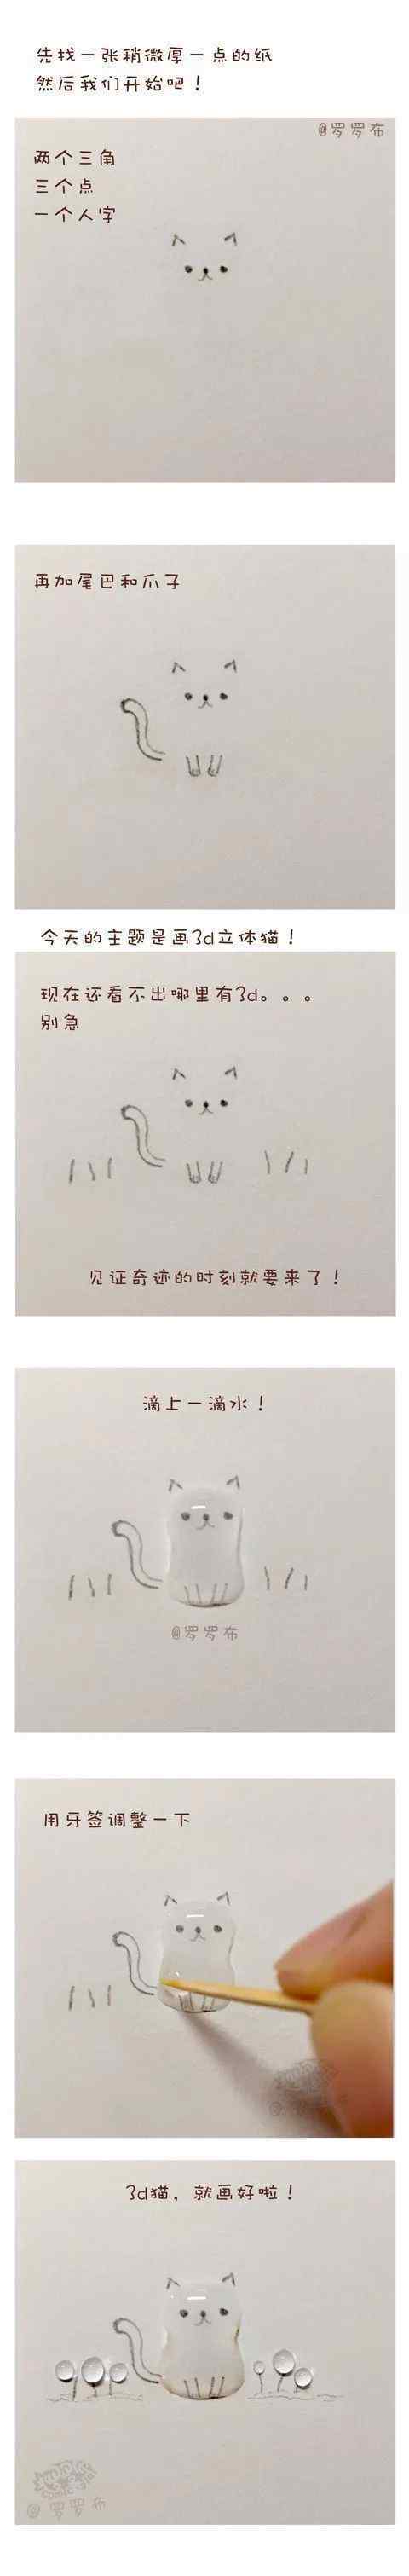 先找一张稍微厚一点的纸
然后我们开始吧！
@罗罗布
两个三角
三个点
一个人字
再加尾巴和爪子
今天的主题是画3d立体猫！
现在还看不出哪里有3d。。。
别急
见证奇迹的时刻就要来了！
滴上一滴水！
@罗罗布
用牙签调整一下
3d猫，就画好啦！
@罗罗布